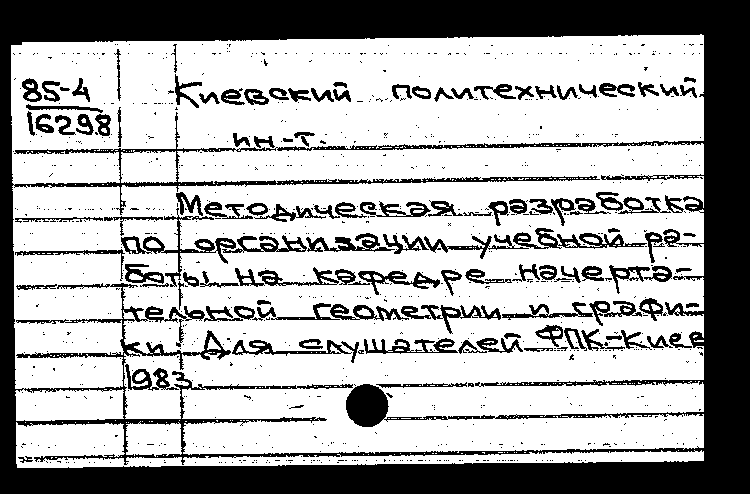 85-4
16298
Киевский политехнический
ин-т.
Методическая разработка
по организации учебной ра-
боты на кафедре начерта-
тельной геометрии и графи-
ки Для слушателей ФПК-Киев
1983.